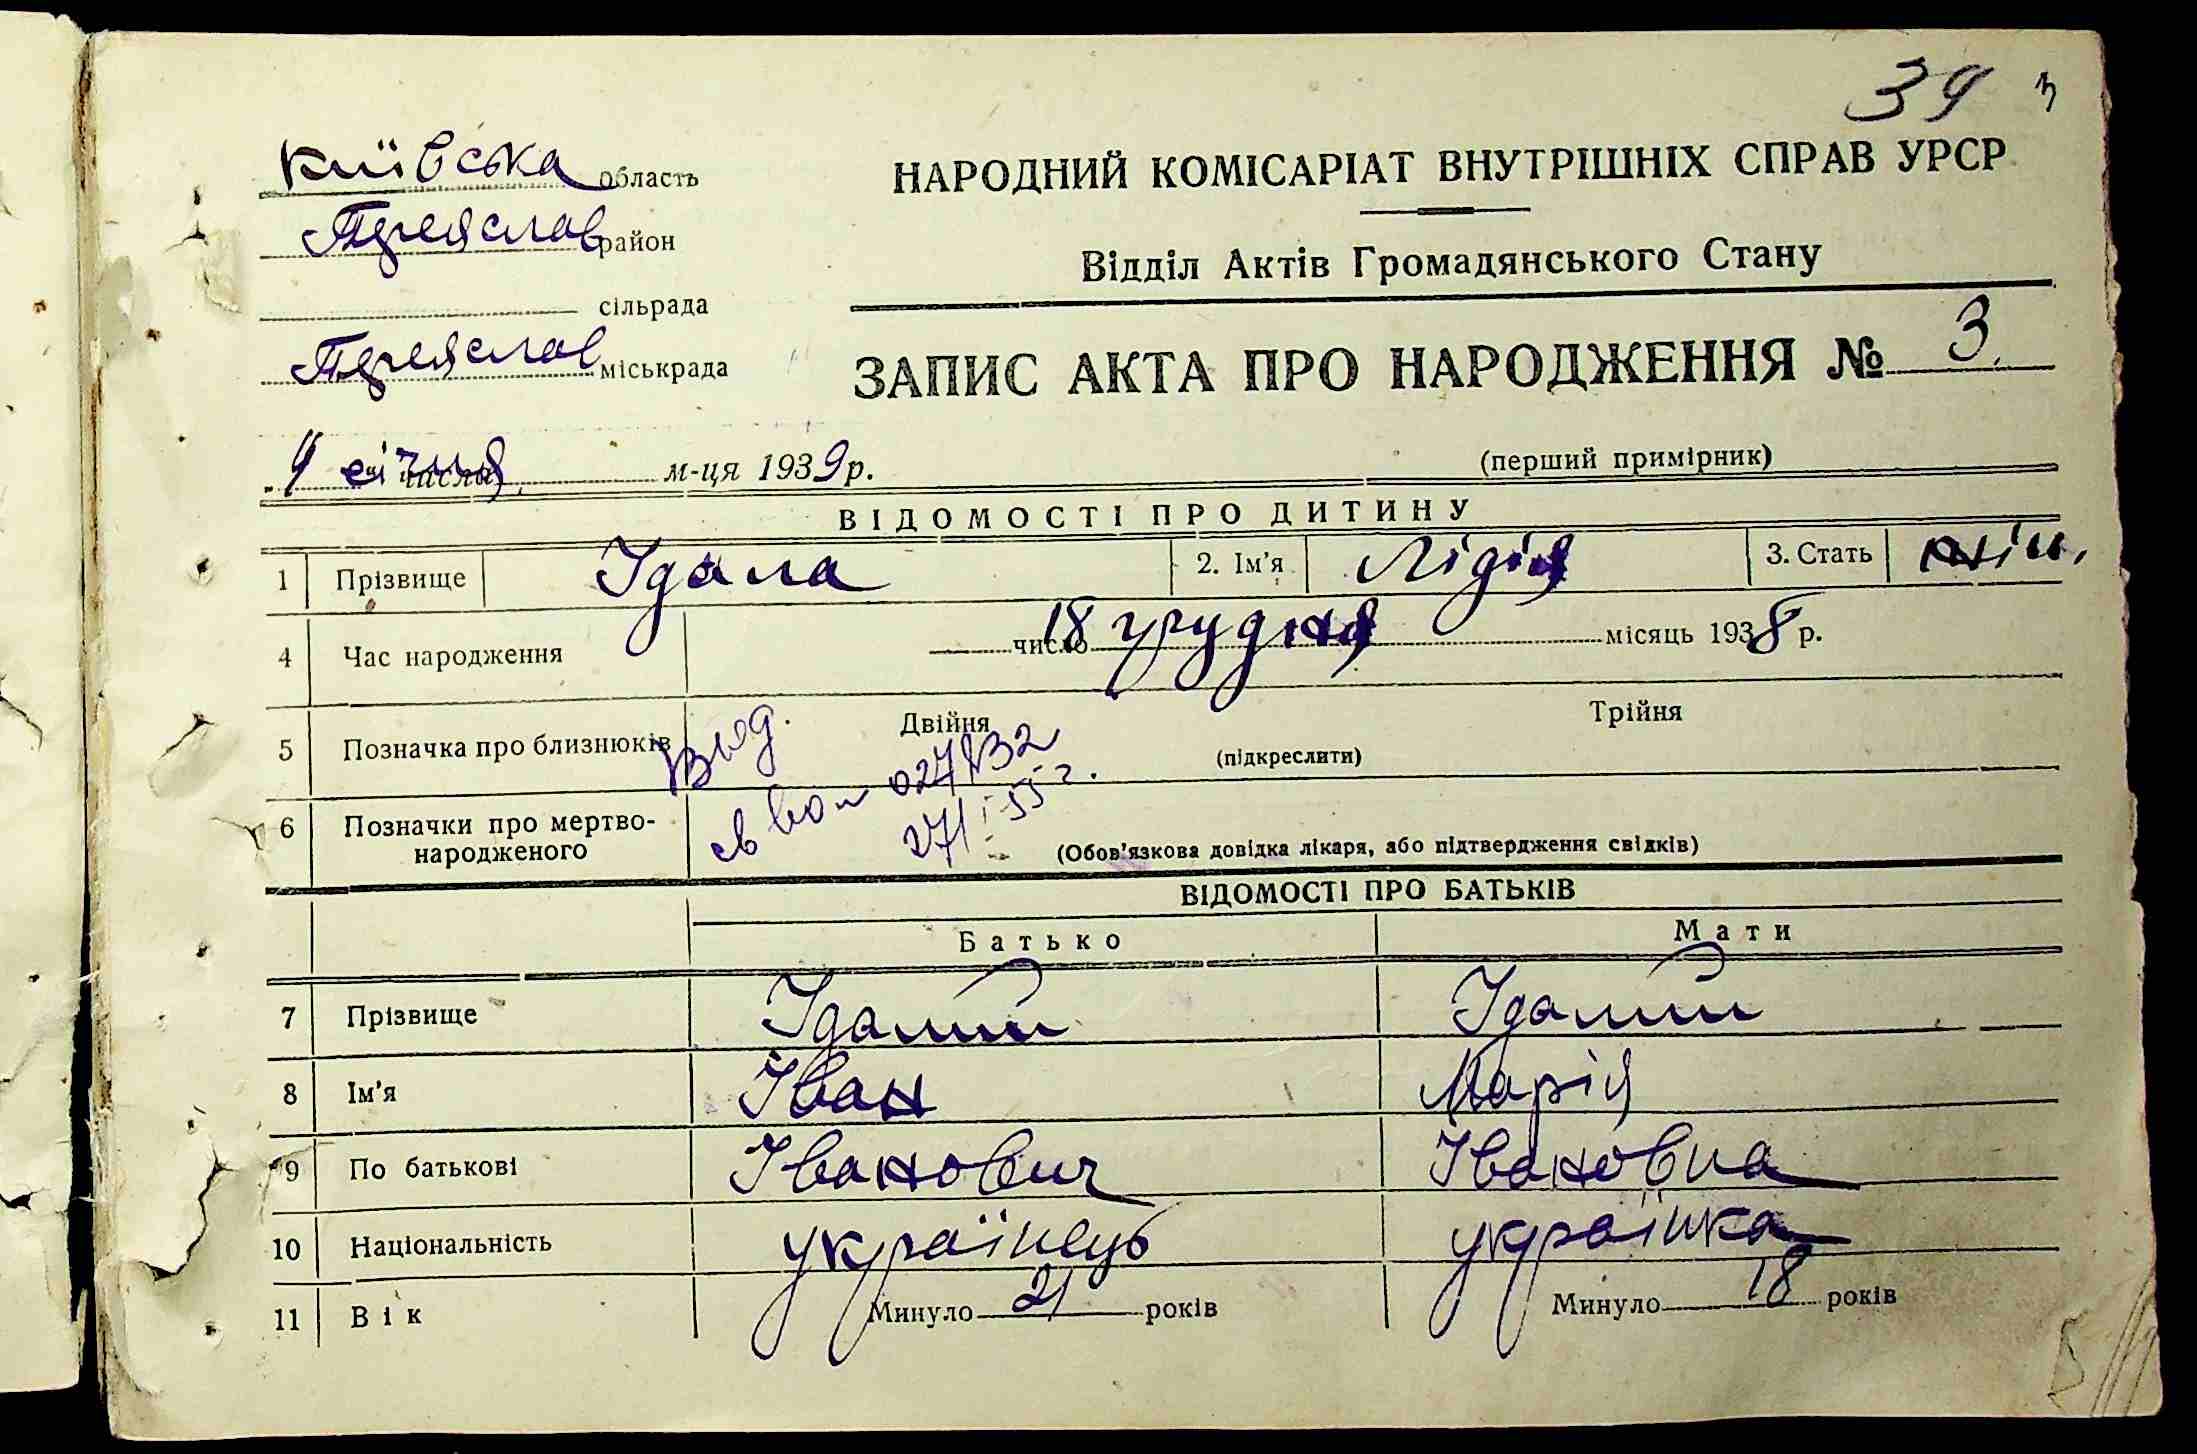 39 3
Київська область
НАРОДНИЙ КОМІСАРІАТ ВНУТРІШНІХ СПРАВ УРСР
Переяслав район
Відділ Актів Громадянського Стану
сільрада
Переяслав міськрада
ЗАПИС АКТА ПРО НАРОДЖЕННЯ № 3.
4 січня числа м-ця 1939 р.
(перший примірник)
ВІДОМОСТІ ПРО ДИТИНУ
1 Прізвище Удала 2. Ім'я Лідія 3. Стать жін.
4 Час народження 18 число грудня місяць 1938 р.
5 Позначка про близнюків Двійня Трійня
(підкреслити)
Выд.
027832
27/I-55 г.
6 Позначки про мертво-
народженого
(Обов'язкова довідка лікаря, або підтвердження свідків)
ВІДОМОСТІ ПРО БАТЬКІВ
Батько Мати
7 Прізвище Удалий Удалий
8 Ім'я Іван Марія
9 По батькові Іванович Івановна
10 Національність українець українка
11 Вік Минуло 21 років Минуло 18 років